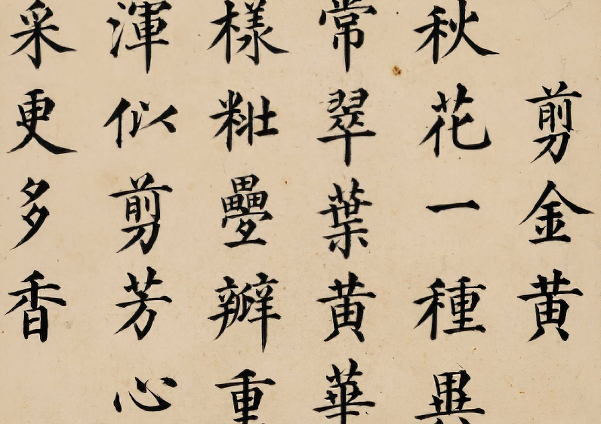 剪金黄
秋花一種異
常翠葉黄華
樣粧疊瓣重
渾似剪芳心
采更多香